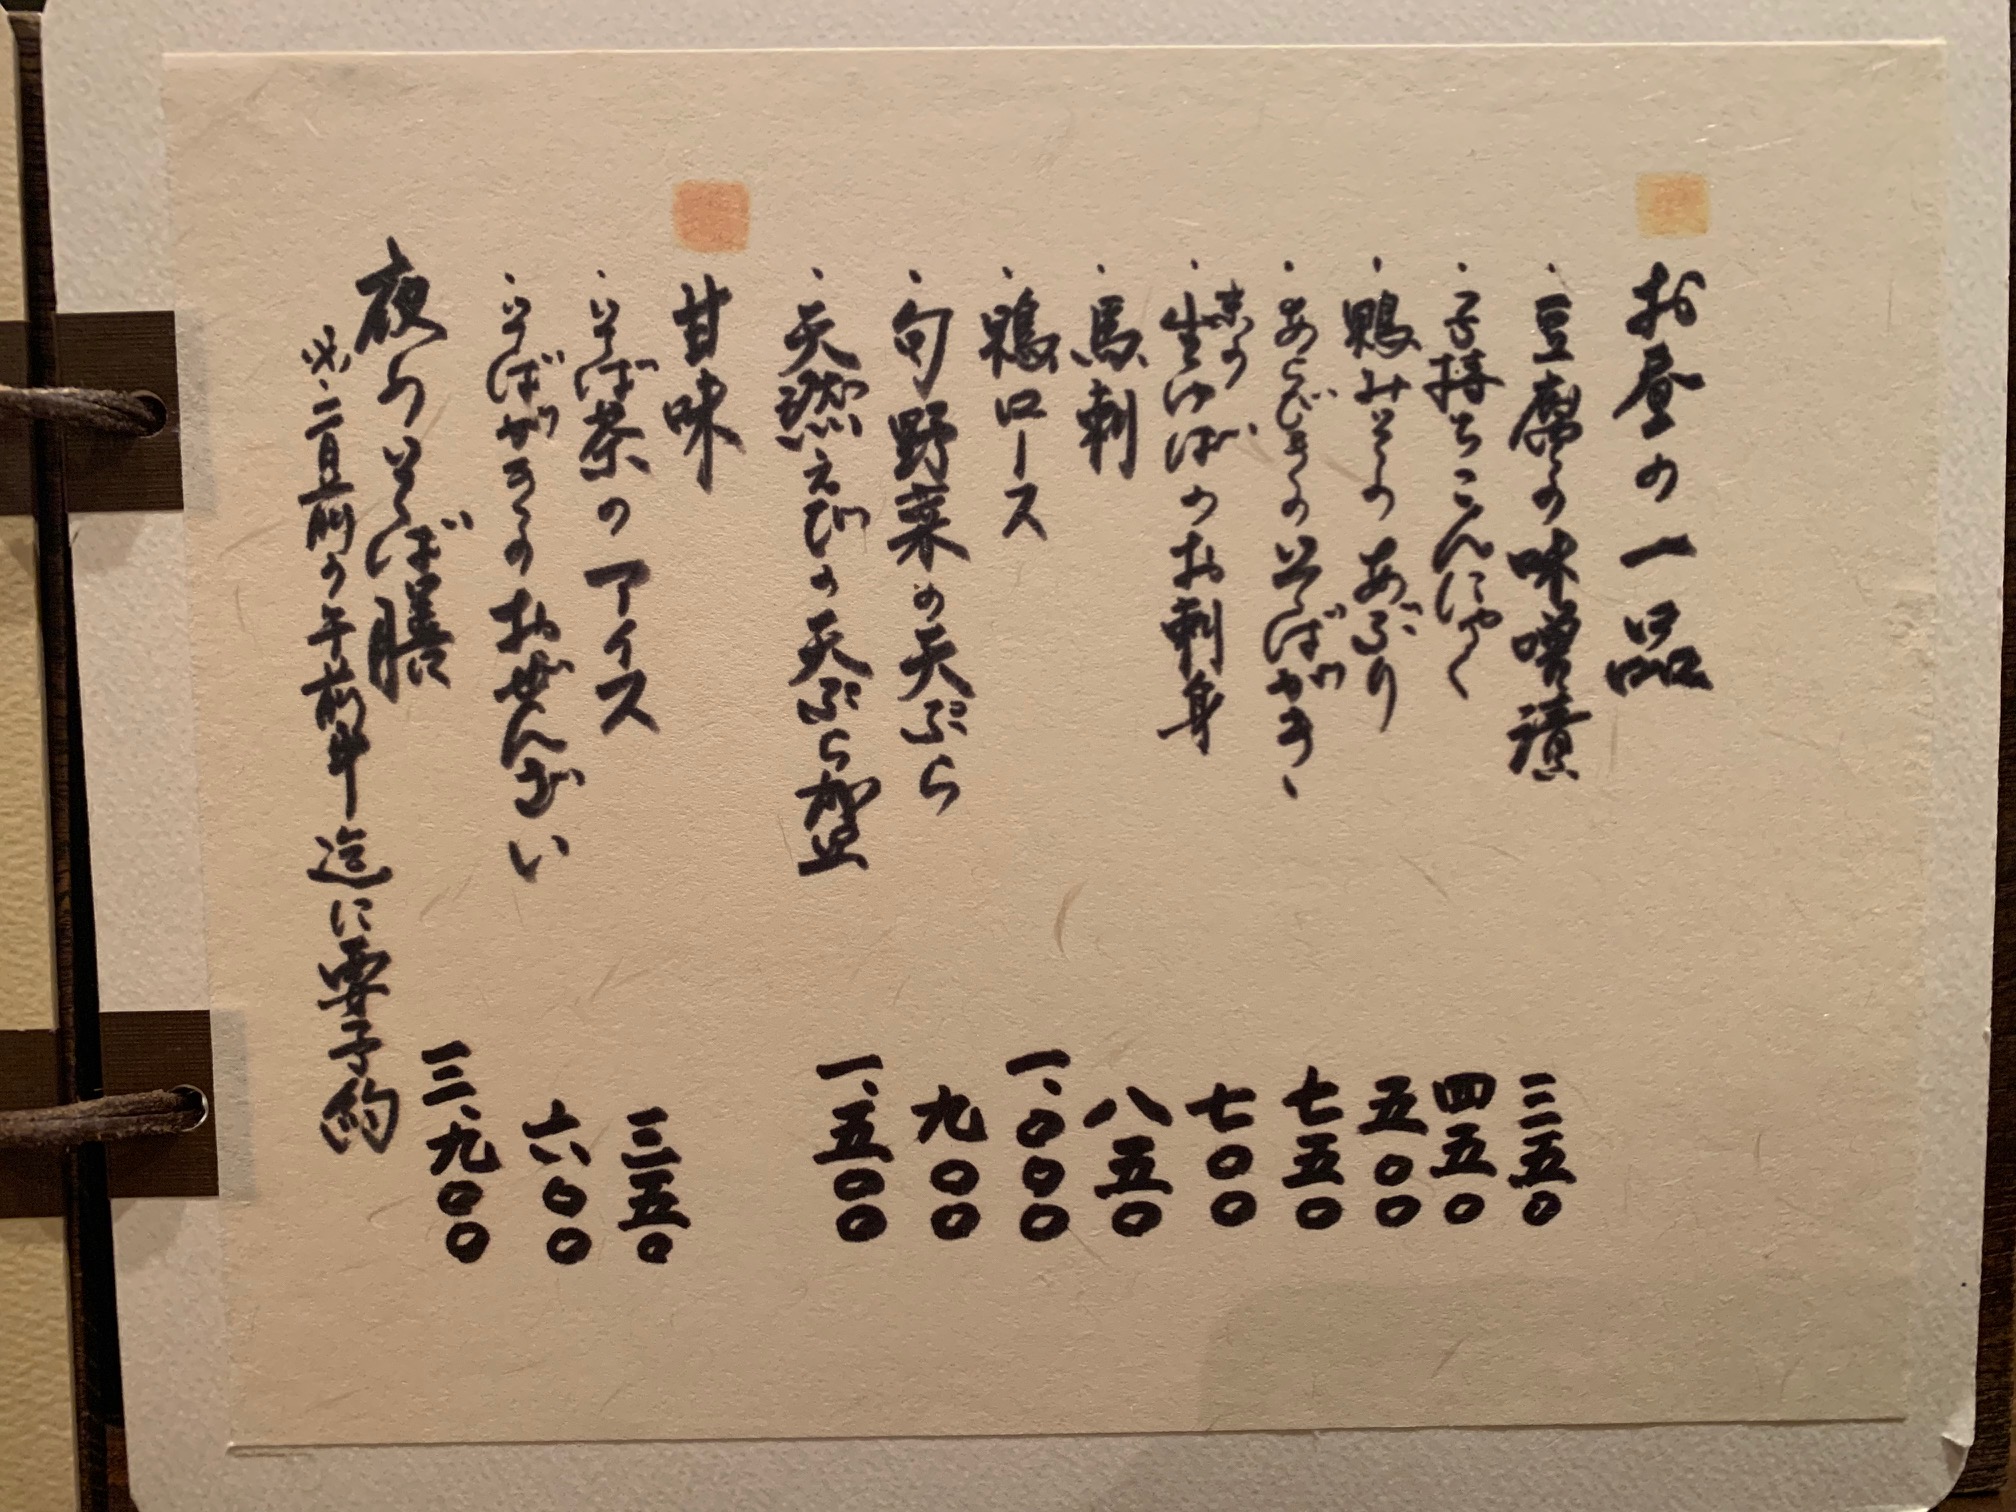 お昼の一品
・豆腐の味噌漬 三五〇
・子持ちこんにゃく 四五〇
・鴨みそのあぶり 五〇〇
・あらびきのそばがき 七五〇
・京の生ゆばのお刺身 七〇〇
・馬刺 八五〇
・鴨ロース 一、〇〇〇
・旬野菜の天ぷら 九〇〇
・天然えびの天ぷら盛 一、五〇〇
甘味
・そば茶のアイス 三五〇
・そばがきのおぜんざい 六〇〇
夜のそば膳 三、九〇〇
※二日前の午前中迄に要予約